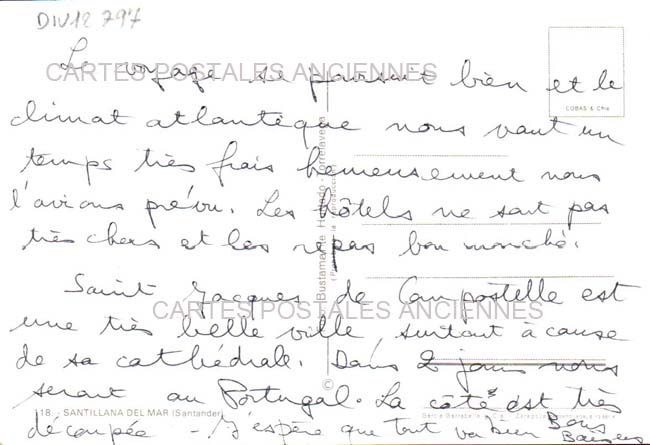 DIV12 797
Le voyage se poursuit bien et le
CARTES POSTALES ANCIENNES
COBAS & Cia
climat atlantique nous vaut un
temps très frais heureusement nous
l'avions prévu. Les hôtels ne sont pas
très chers et les repas bon marché.
Saint Jacques de Compostelle est
CARTES POSTALES ANCIENNES
une très belle ville, surtout à cause
de sa cathédrale. Dans 2 jours nous
serons au Portugal. La côte est très
18. - SANTILLANA DEL MAR (Santander)
découpée - J'espère que tout va bien Bons
Baisers
Bustamante Hurtado - Torrelavega